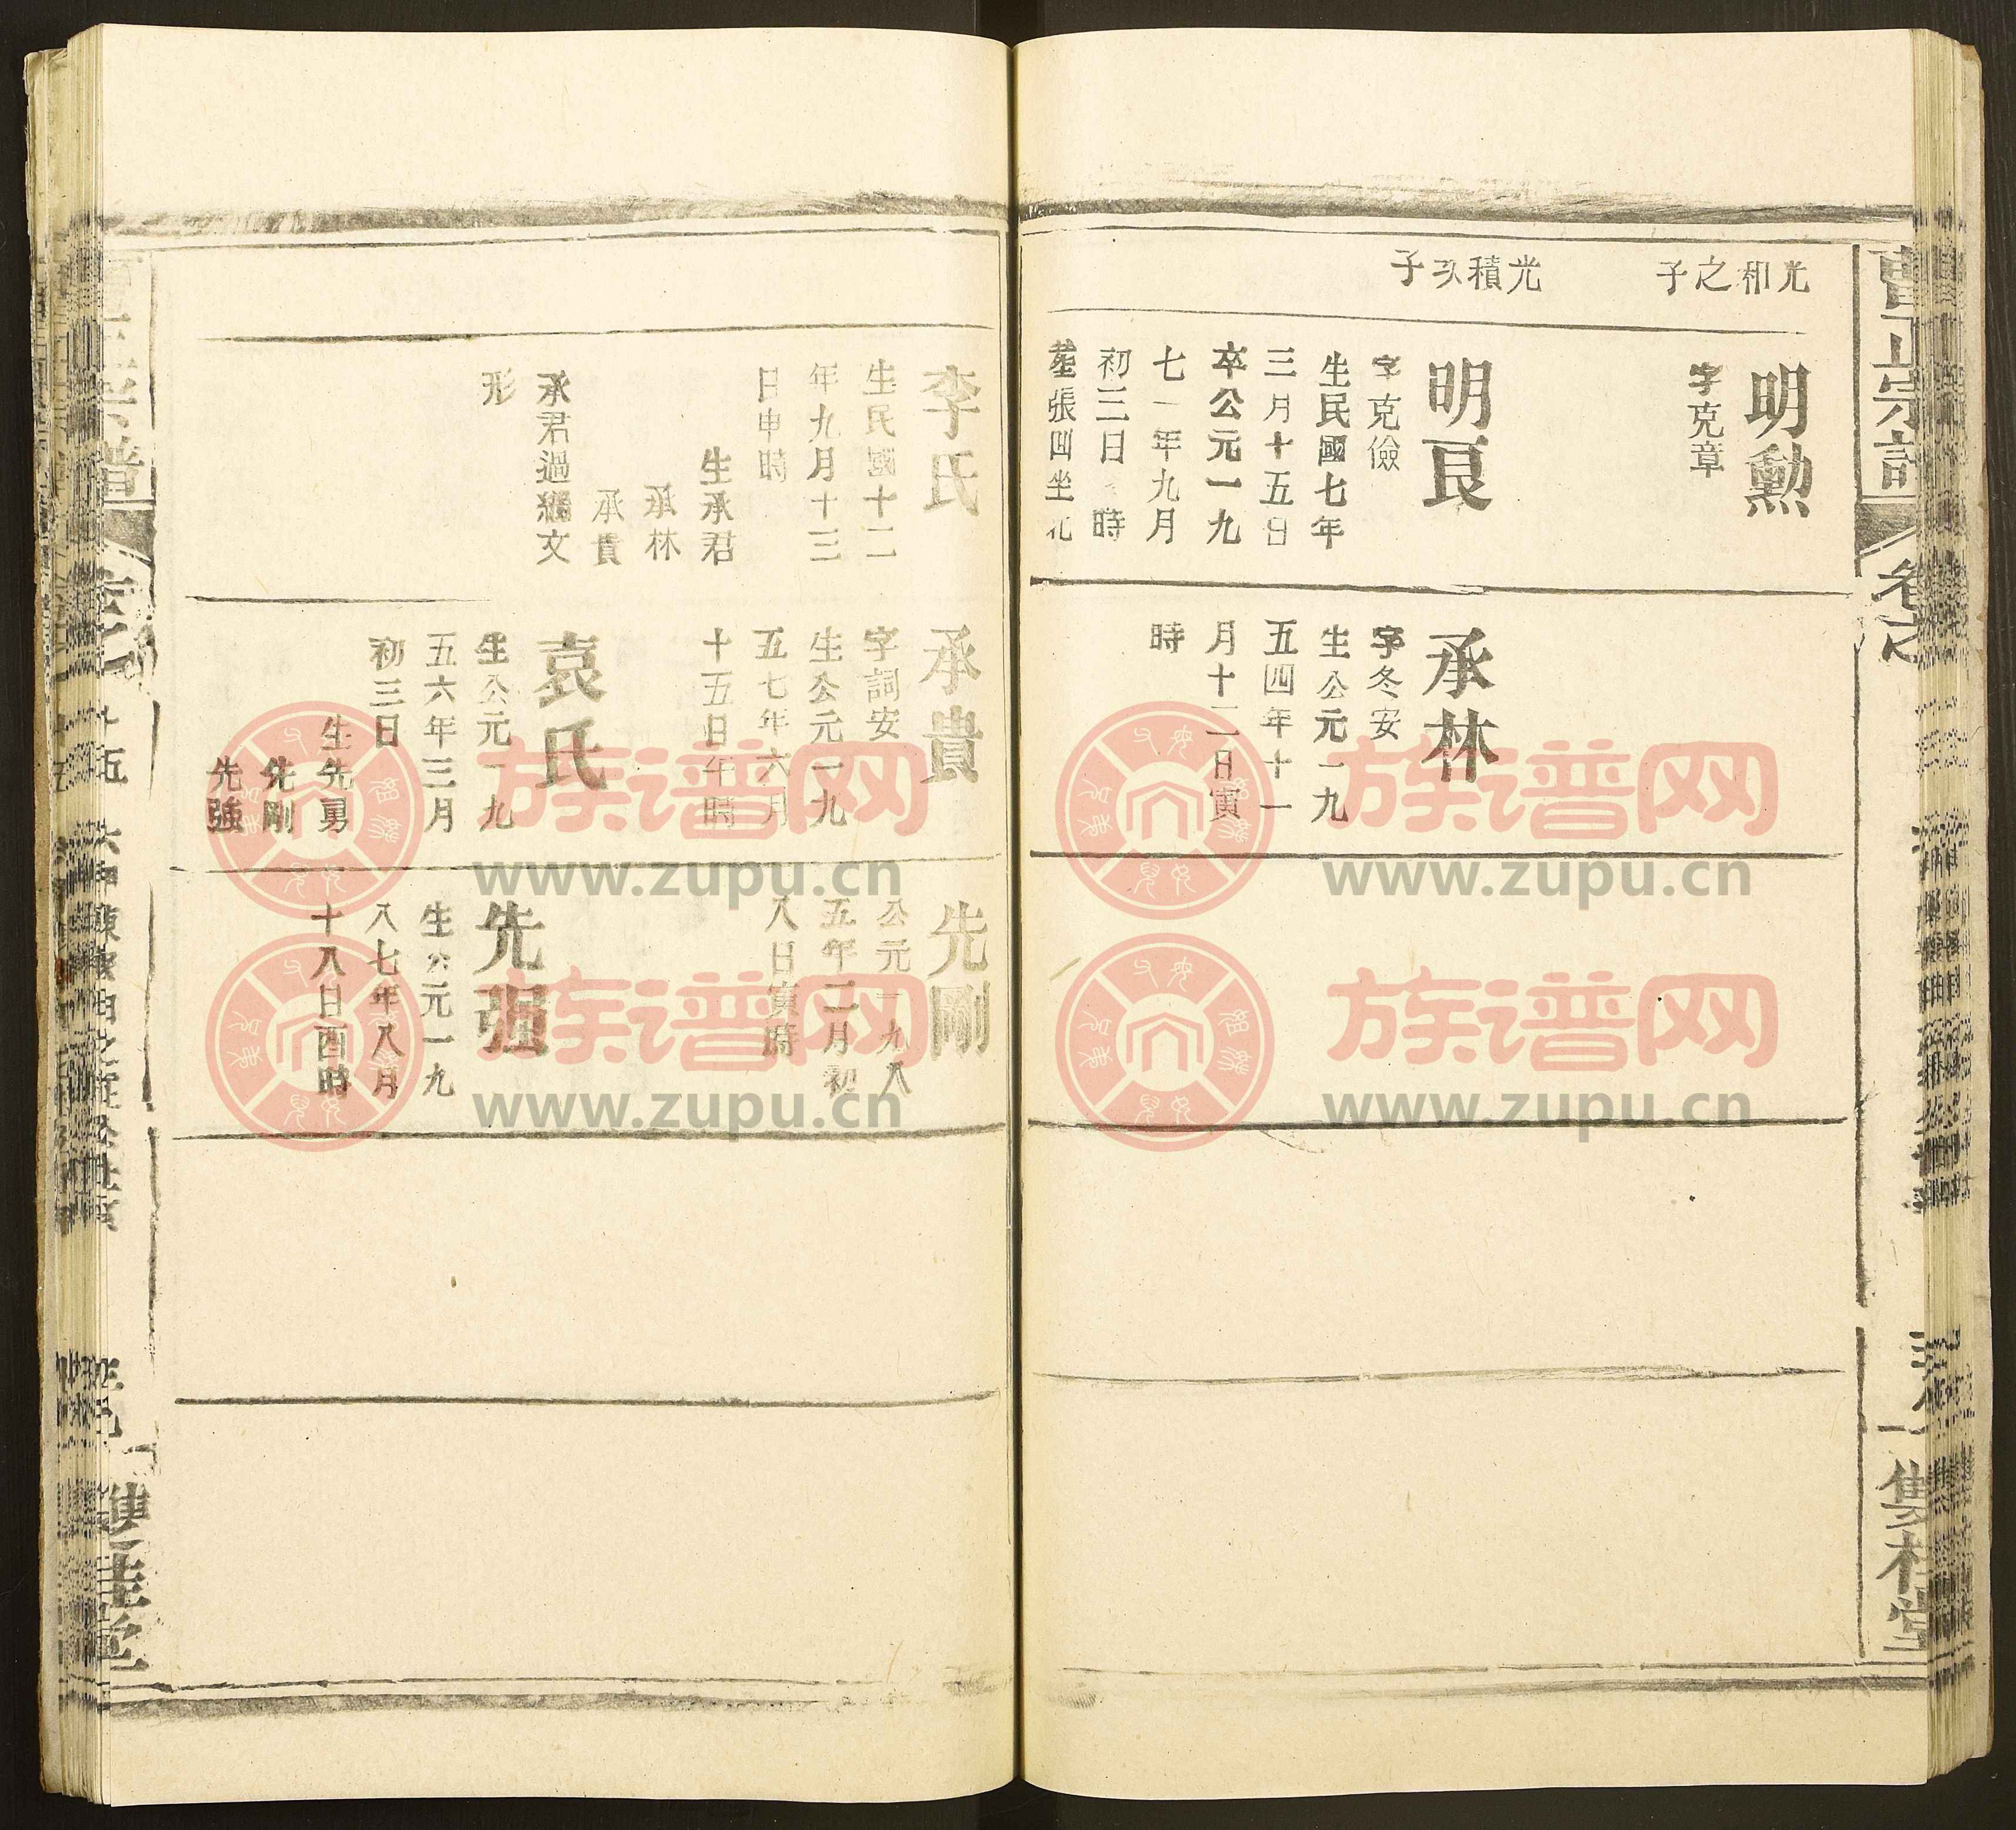 光和之子
明勲
字克章
光積次子
明良
字克儉
生民國七年
三月十五日
卒公元一九
七一年九月
初三日 時
塟張凹坐北
承林
字冬安
生公元一九
五四年十一
月十二日寅
時
李氏
生民國十二
年九月十三
日申時
生承君
承林
承貴
承君過繼文
形
承貴
字詞安
生公元一九
五七年六月
十五日午時
袁氏
生公元一九
五六年三月
初三日
生先勇
先剛
先強
先剛
公元一九八
五年二月初
八日寅時
先强
生公元一九
八七年八月
十八日酉時
卷之
雙桂堂
雙桂堂
族谱网
www.zupu.cn
族谱网
www.zupu.cn
族谱网
www.zupu.cn
族谱网
www.zupu.cn